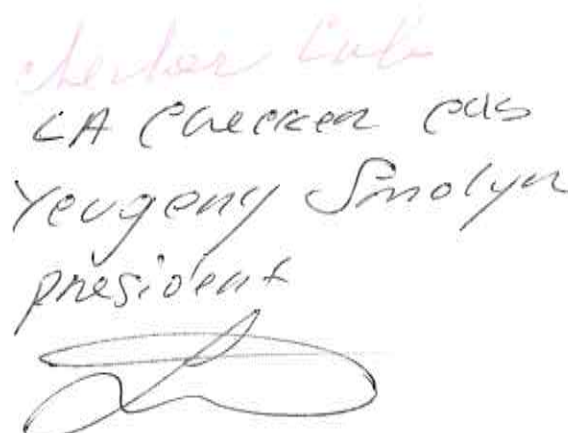 checker Cab
LA Checker cab
Yevgeny Smolyn
president